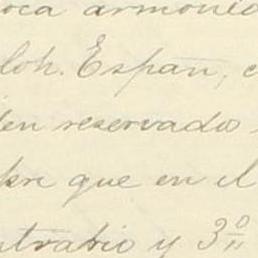 oca armonio
loh. Españ, e
den reservado
bre que en el
ntrario y 3º